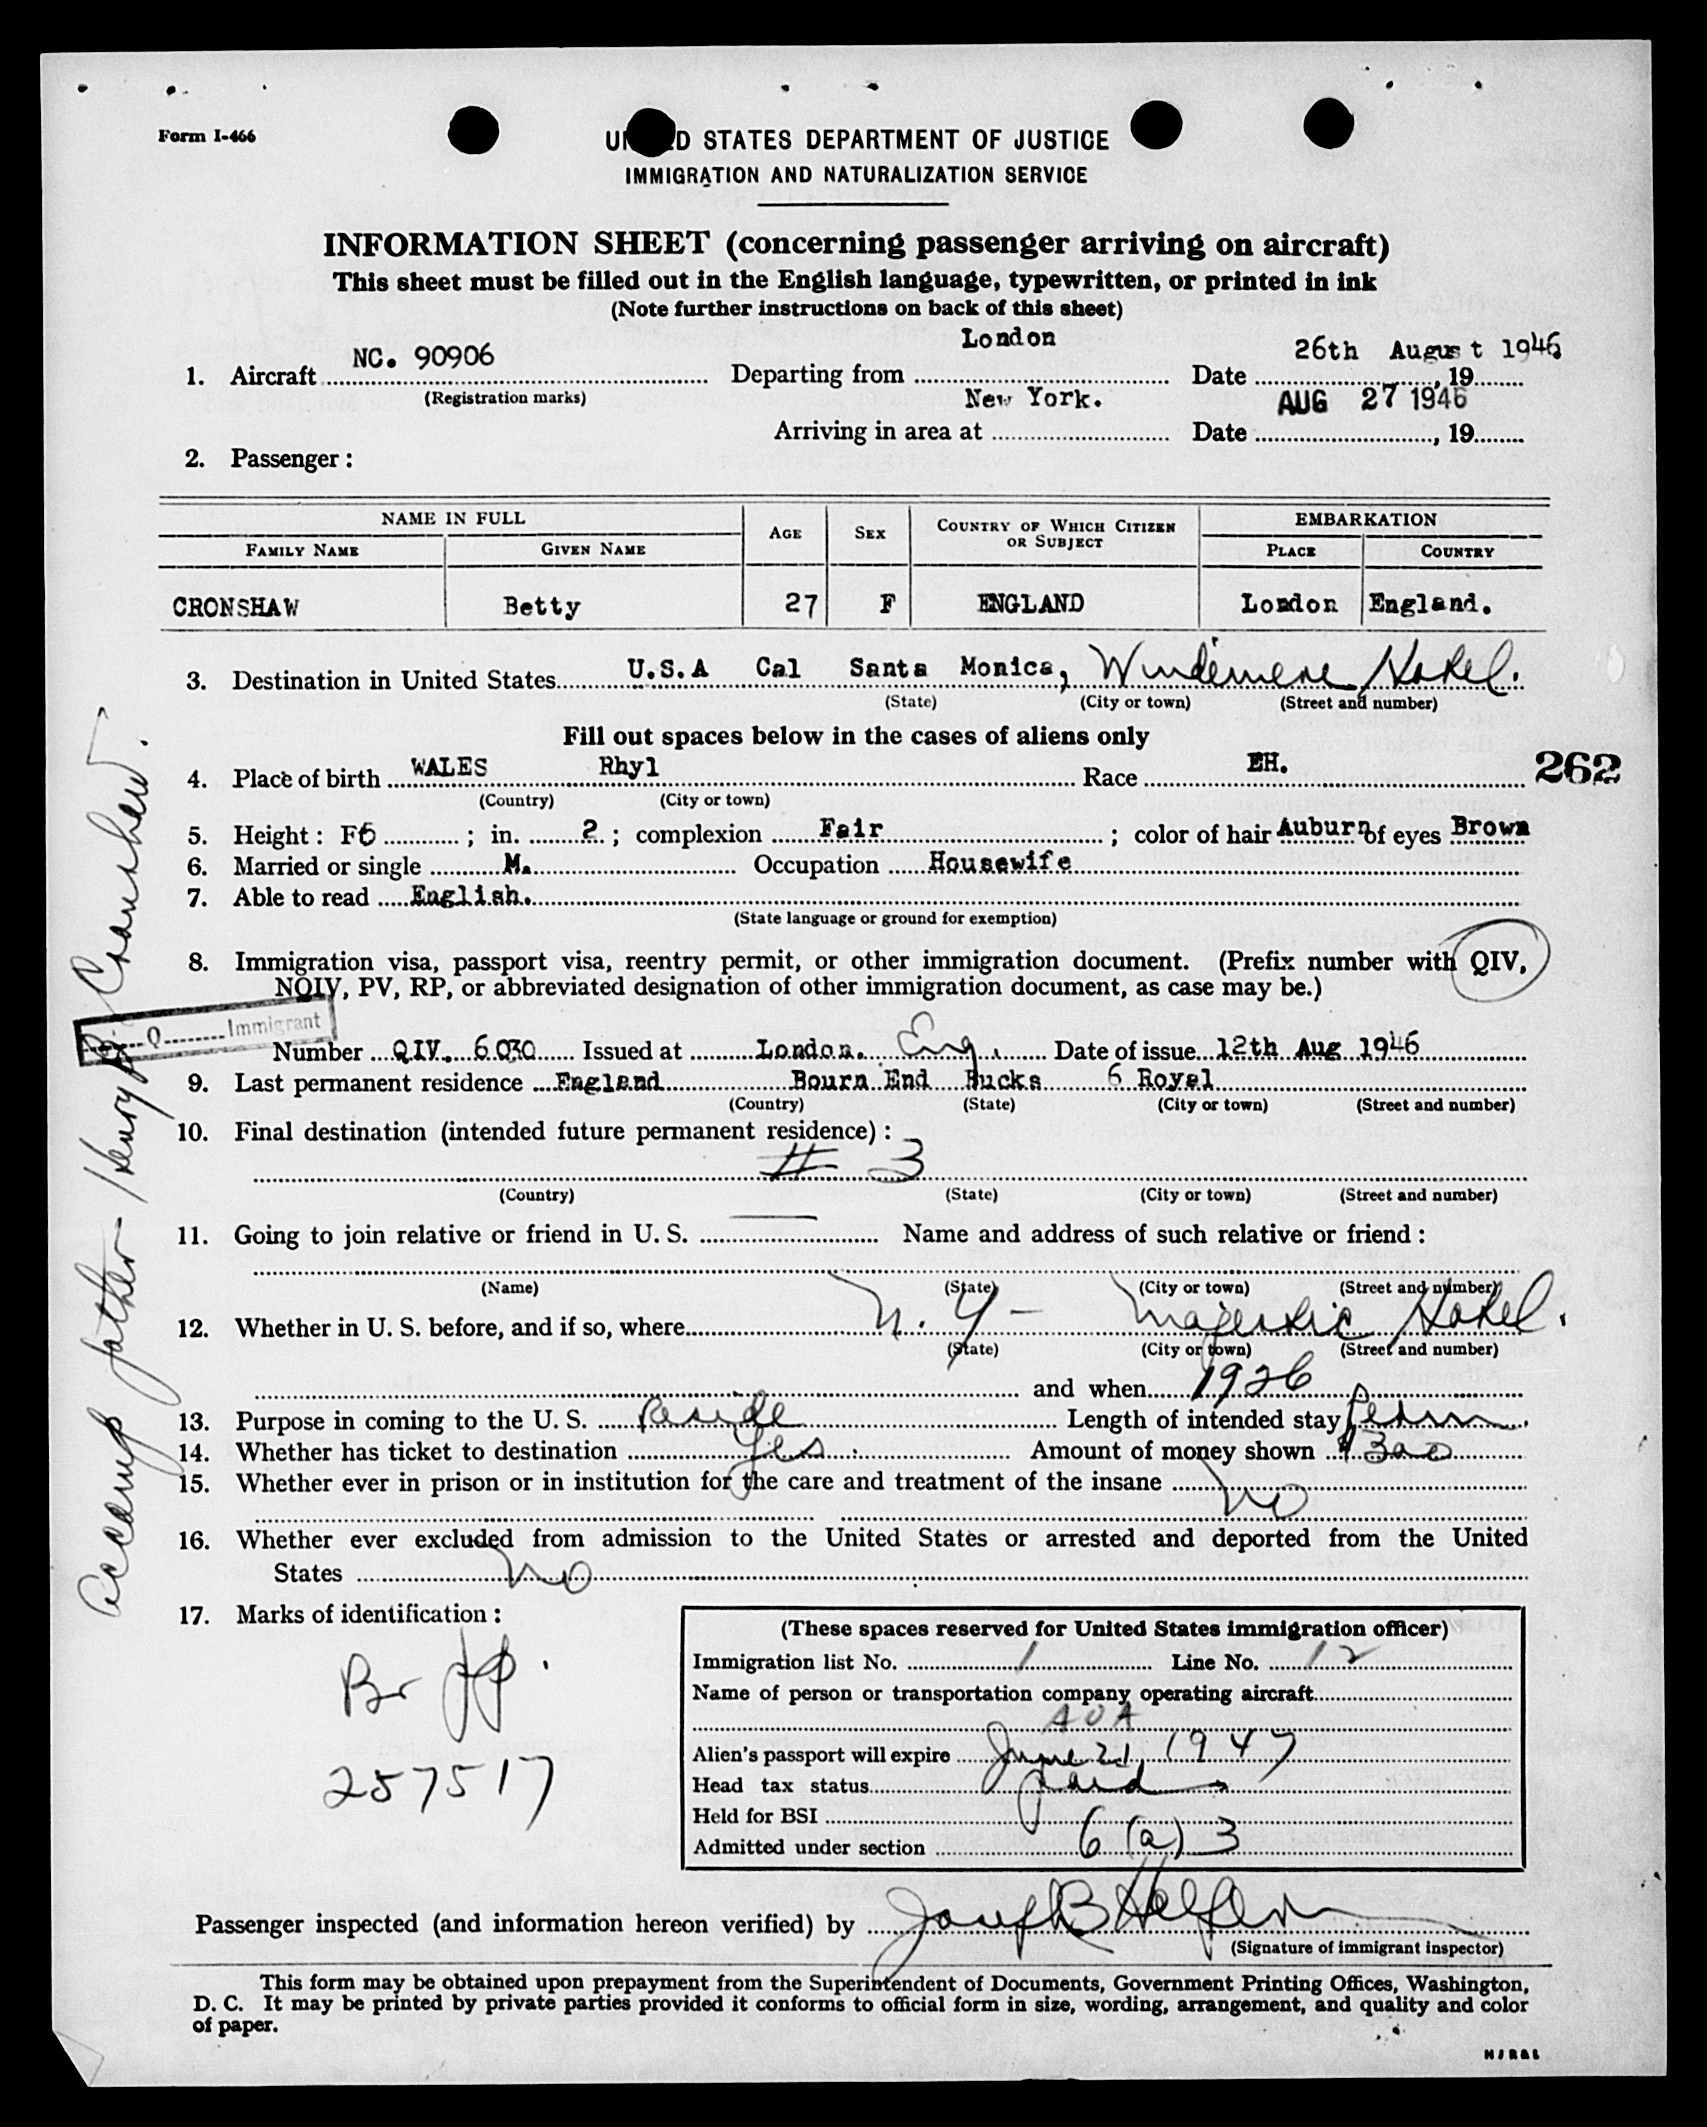 Form I-466
UNITED STATES DEPARTMENT OF JUSTICE
IMMIGRATION AND NATURALIZATION SERVICE
INFORMATION SHEET (concerning passenger arriving on aircraft)
This sheet must be filled out in the English language, typewritten, or printed in ink
(Note further instructions on back of this sheet)
1. Aircraft NC. 90906 Departing from London Date 26th August 1946, 19
(Registration marks)
Arriving in area at New York. Date AUG 27 1946, 19
2. Passenger:
NAME IN FULL AGE SEX COUNTRY OF WHICH CITIZEN OR SUBJECT EMBARKATION
FAMILY NAME GIVEN NAME PLACE COUNTRY
CRONSHAW Betty 27 F ENGLAND London England.
3. Destination in United States U.S.A Cal Santa Monica, Windemere Hotel.
(State) (City or town) (Street and number)
Fill out spaces below in the cases of aliens only
4. Place of birth WALES Rhyl Race EH. 262
(Country) (City or town)
5. Height: F5 ; in. 2 ; complexion Fair ; color of hair Auburn of eyes Brown
6. Married or single M. Occupation Housewife
7. Able to read English.
(State language or ground for exemption)
8. Immigration visa, passport visa, reentry permit, or other immigration document. (Prefix number with QIV,
NQIV, PV, RP, or abbreviated designation of other immigration document, as case may be.)
Q Immigrant
Number QIV. 6030 Issued at London. Eng. Date of issue 12th Aug 1946
9. Last permanent residence England Bourn End Bucks 6 Royal
(Country) (State) (City or town) (Street and number)
10. Final destination (intended future permanent residence):
# 3
(Country) (State) (City or town) (Street and number)
11. Going to join relative or friend in U. S. — Name and address of such relative or friend:
(Name) (State) (City or town) (Street and number)
12. Whether in U. S. before, and if so, where N. Y - Majestic Hotel.
(State) (City or town) (Street and number)
and when 1926
13. Purpose in coming to the U. S. reside Length of intended stay Perm
14. Whether has ticket to destination Yes Amount of money shown $300
15. Whether ever in prison or in institution for the care and treatment of the insane No
16. Whether ever excluded from admission to the United States or arrested and deported from the United
States No
17. Marks of identification:
Br pp.
257517
(These spaces reserved for United States immigration officer)
Immigration list No. 1 Line No. 12
Name of person or transportation company operating aircraft
AOA
Alien's passport will expire June 21, 1947
Head tax status paid
Held for BSI
Admitted under section 6 (a) 3
Passenger inspected (and information hereon verified) by Joseph B
(Signature of immigrant inspector)
This form may be obtained upon prepayment from the Superintendent of Documents, Government Printing Offices, Washington,
D. C. It may be printed by private parties provided it conforms to official form in size, wording, arrangement, and quality and color
of paper.
father - Henry Cronshaw.